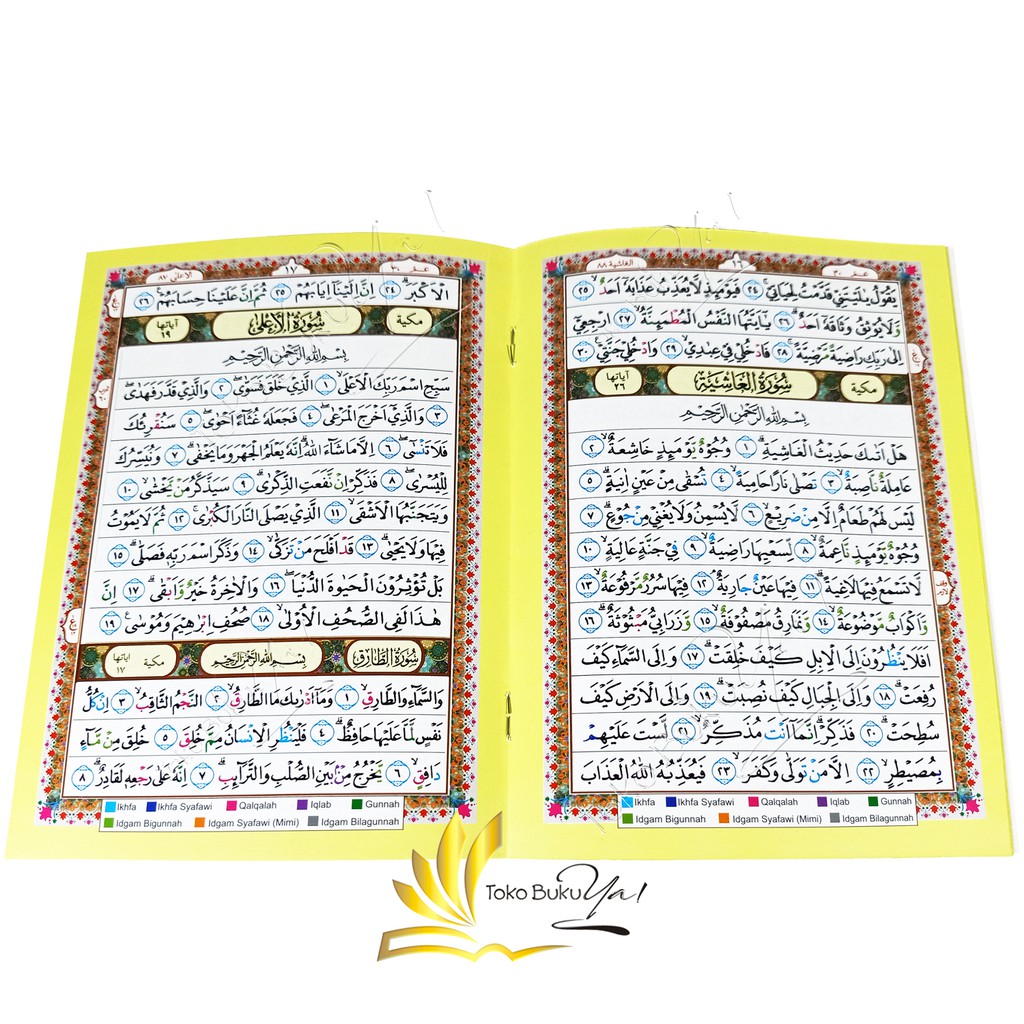 عم ٣٠
١٦
الغاشية ٨٨
يَقُوْلُ يٰلَيْتَنِيْ قَدَّمْتُ لِحَيَاتِيْۚ ٢٤ فَيَوْمَىِٕذٍ لَّا يُعَذِّبُ عَذَابَهٗٓ اَحَدٌۙ ٢٥
وَّلَا يُوْثِقُ وَثَاقَهٗٓ اَحَدٌۗ ٢٦ يٰٓاَيَّتُهَا النَّفْسُ الْمُطْمَىِٕنَّةُۙ ٢٧ ارْجِعِيْٓ
اِلٰى رَبِّكِ رَاضِيَةً مَّرْضِيَّةًۚ ٢٨ فَادْخُلِيْ فِيْ عِبٰدِيْۙ ٢٩ وَادْخُلِيْ جَنَّتِيْ ٣٠
مكية
سُوْرَةُ الْغَاشِيَةِ
اٰياتها ٢٦
بِسْمِ اللّٰهِ الرَّحْمٰنِ الرَّحِيْمِ
هَلْ اَتٰىكَ حَدِيْثُ الْغَاشِيَةِۗ ١ وُجُوْهٌ يَّوْمَىِٕذٍ خَاشِعَةٌۙ ٢
عَامِلَةٌ نَّاصِبَةٌۙ ٣ تَصْلٰى نَارًا حَامِيَةًۙ ٤ تُسْقٰى مِنْ عَيْنٍ اٰنِيَةٍۗ ٥
لَيْسَ لَهُمْ طَعَامٌ اِلَّا مِنْ ضَرِيْعٍۙ ٦ لَّا يُسْمِنُ وَلَا يُغْنِيْ مِنْ جُوْعٍۗ ٧
وُجُوْهٌ يَّوْمَىِٕذٍ نَّاعِمَةٌۙ ٨ لِّسَعْيِهَا رَاضِيَةٌۙ ٩ فِيْ جَنَّةٍ عَالِيَةٍۙ ١٠
لَّا تَسْمَعُ فِيْهَا لَاغِيَةًۗ ١١ فِيْهَا عَيْنٌ جَارِيَةٌۘ ١٢ فِيْهَا سُرُرٌ مَّرْفُوْعَةٌۙ ١٣
وَّاَكْوَابٌ مَّوْضُوْعَةٌۙ ١٤ وَّنَمَارِقُ مَصْفُوْفَةٌۙ ١٥ وَّزَرَابِيُّ مَبْثُوْثَةٌۗ ١٦
اَفَلَا يَنْظُرُوْنَ اِلَى الْاِبِلِ كَيْفَ خُلِقَتْۗ ١٧ وَاِلَى السَّمَاۤءِ كَيْفَ
رُفِعَتْۗ ١٨ وَاِلَى الْجِبَالِ كَيْفَ نُصِبَتْۗ ١٩ وَاِلَى الْاَرْضِ كَيْفَ
سُطِحَتْۗ ٢٠ فَذَكِّرْۗ اِنَّمَآ اَنْتَ مُذَكِّرٌۗ ٢١ لَسْتَ عَلَيْهِمْ
بِمُصَيْطِرٍۙ ٢٢ اِلَّا مَنْ تَوَلّٰى وَكَفَرَۙ ٢٣ فَيُعَذِّبُهُ اللّٰهُ الْعَذَابَ
Ikhfa Ikhfa Syafawi Qalqalah Iqlab Gunnah
Idgam Bigunnah Idgam Syafawi (Mimi) Idgam Bilagunnah
عم ٣٠
١٧
الاعلى ٨٧
الْاَكْبَرَۗ ٢٤ اِنَّ اِلَيْنَآ اِيَابَهُمْۙ ٢٥ ثُمَّ اِنَّ عَلَيْنَا حِسَابَهُمْ ٢٦
مكية
سُوْرَةُ الْاَعْلٰى
اٰياتها ١٩
بِسْمِ اللّٰهِ الرَّحْمٰنِ الرَّحِيْمِ
سَبِّحِ اسْمَ رَبِّكَ الْاَعْلَىۙ ١ الَّذِيْ خَلَقَ فَسَوّٰىۖ ٢ وَالَّذِيْ قَدَّرَ فَهَدٰىۖ
٣ وَالَّذِيْٓ اَخْرَجَ الْمَرْعٰىۖ ٤ فَجَعَلَهٗ غُثَاۤءً اَحْوٰىۖ ٥ سَنُقْرِئُكَ
فَلَا تَنْسٰىٓۙ ٦ اِلَّا مَا شَاۤءَ اللّٰهُۗ اِنَّهٗ يَعْلَمُ الْجَهْرَ وَمَا يَخْفٰىۗ ٧ وَنُيَسِّرُكَ
لِلْيُسْرٰىۖ ٨ فَذَكِّرْ اِنْ نَّفَعَتِ الذِّكْرٰىۗ ٩ سَيَذَّكَّرُ مَنْ يَّخْشٰىۙ ١٠
وَيَتَجَنَّبُهَا الْاَشْقَىۙ ١١ الَّذِيْ يَصْلَى النَّارَ الْكُبْرٰىۚ ١٢ ثُمَّ لَا يَمُوْتُ
فِيْهَا وَلَا يَحْيٰىۗ ١٣ قَدْ اَفْلَحَ مَنْ تَزَكّٰىۙ ١٤ وَذَكَرَ اسْمَ رَبِّهٖ فَصَلّٰىۗ ١٥
بَلْ تُؤْثِرُوْنَ الْحَيٰوةَ الدُّنْيَاۖ ١٦ وَالْاٰخِرَةُ خَيْرٌ وَّاَبْقٰىۗ ١٧ اِنَّ
هٰذَا لَفِى الصُّحُفِ الْاُوْلٰىۙ ١٨ صُحُفِ اِبْرٰهِيْمَ وَمُوْسٰى ١٩
سُوْرَةُ الطَّارِقِ
بِسْمِ اللّٰهِ الرَّحْمٰنِ الرَّحِيْمِ
مكية
اٰياتها ١٧
وَالسَّمَاۤءِ وَالطَّارِقِۙ ١ وَمَآ اَدْرٰىكَ مَا الطَّارِقُۙ ٢ النَّجْمُ الثَّاقِبُۙ ٣ اِنْ كُلُّ
نَفْسٍ لَّمَّا عَلَيْهَا حَافِظٌۗ ٤ فَلْيَنْظُرِ الْاِنْسَانُ مِمَّ خُلِقَۗ ٥ خُلِقَ مِنْ مَّاۤءٍ
دَافِقٍۙ ٦ يَّخْرُجُ مِنْۢ بَيْنِ الصُّلْبِ وَالتَّرَاۤىِٕبِۗ ٧ اِنَّهٗ عَلٰى رَجْعِهٖ لَقَادِرٌۗ ٨
Ikhfa Ikhfa Syafawi Qalqalah Iqlab Gunnah
Idgam Bigunnah Idgam Syafawi (Mimi) Idgam Bilagunnah
Toko Buku Ya!